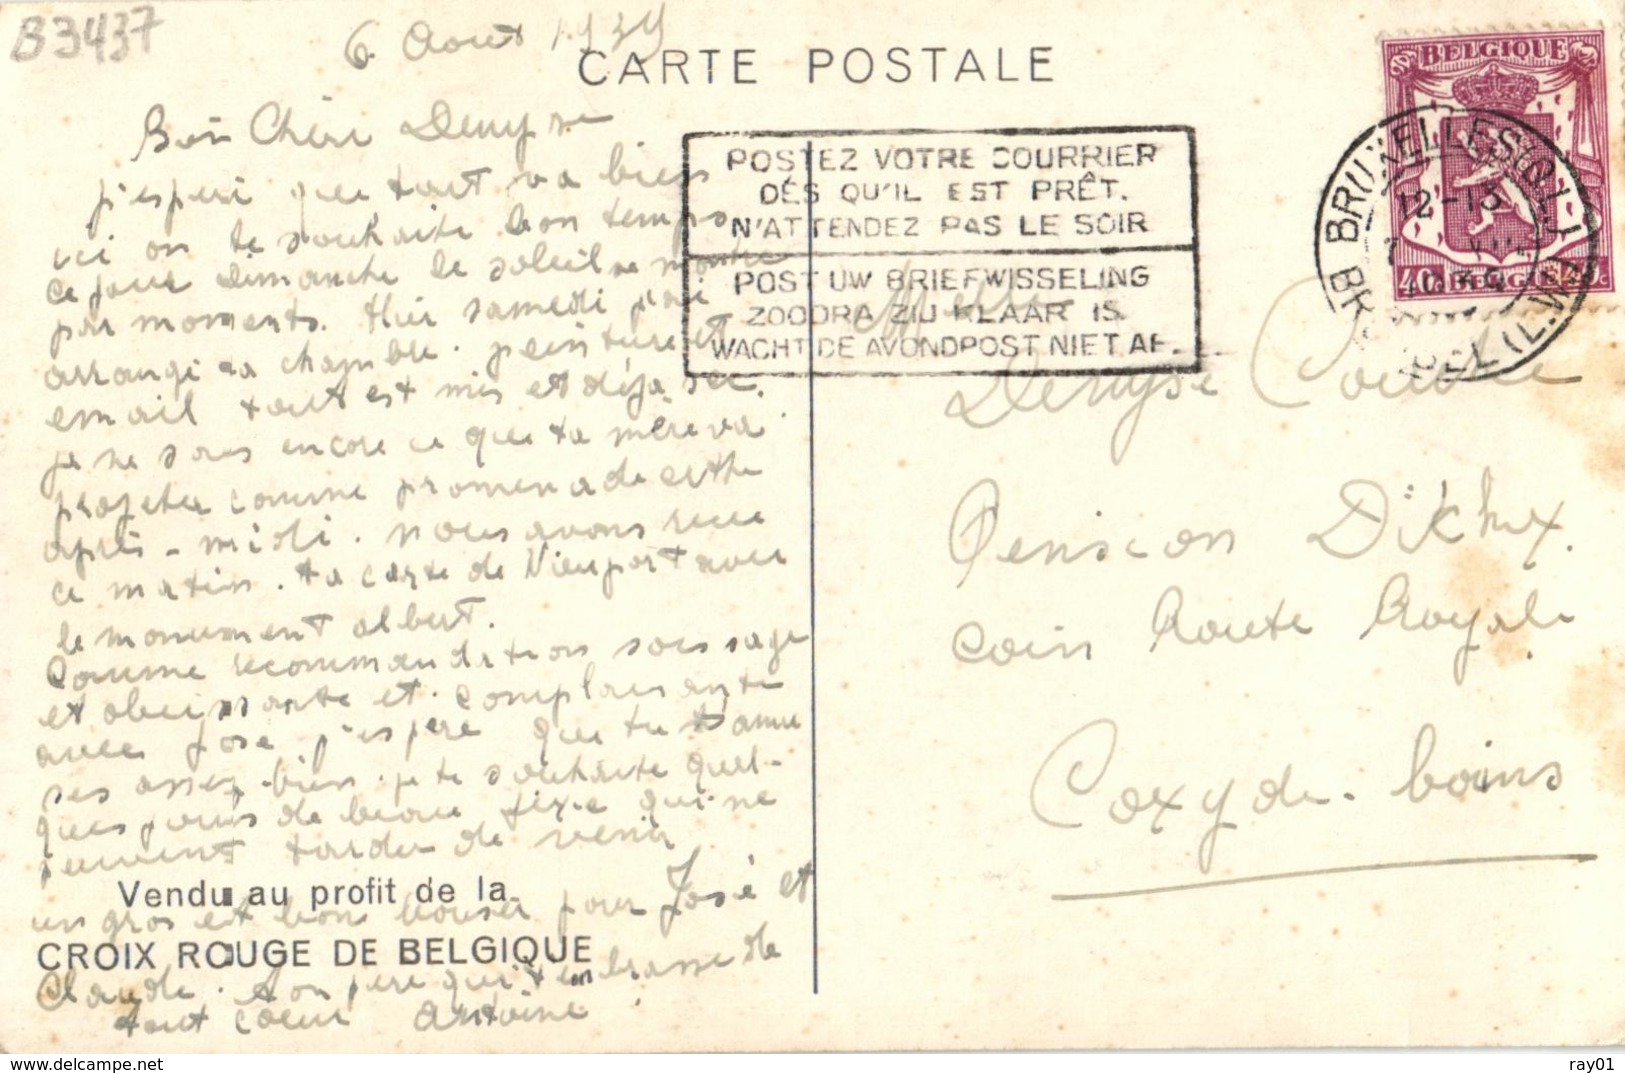 B3437
6. Aout 1939
CARTE POSTALE
Bon Chère Denyse
j'espere que tout va bien
ici on te souhaite bon temps
ce jour dimanche le soleil se montre
par moments. Hier samedi j'ai
arrangé ta chambre. peinture et
email tout est mis et déja sec.
je ne sais encore ce que ta mère va
projeter comme promenade cette
après-midi. nous avons recu
ce matin. ta carte de Nieuport avec
le monument albert.
Comme recommandation sois sage
et obeissante et complaisante
avec José j'espère que tu t'amu
ses assez bien. je te souhaite quel-
ques jours de beau fixe qui ne
peuvent tarder de venir
Vendu au profit de la
un gros et bons baiser pour José et
CROIX ROUGE DE BELGIQUE
Claude. ton père qui t'embrasse de
tout coeur Antoine
POSTEZ VOTRE COURRIER
DÈS QU'IL EST PRÊT.
N'ATTENDEZ PAS LE SOIR
POST UW BRIEFWISSELING
ZOODRA ZIJ KLAAR IS
WACHT DE AVONDPOST NIET AF.
BELGIQUE
40c BELGIE 40c
BRUXELLES (Q.L.)
12-13
1939
BRUSSEL (L.W.)
Melle
Denyse
Pension
coin Route Royale
Coxyde-bains
ray01